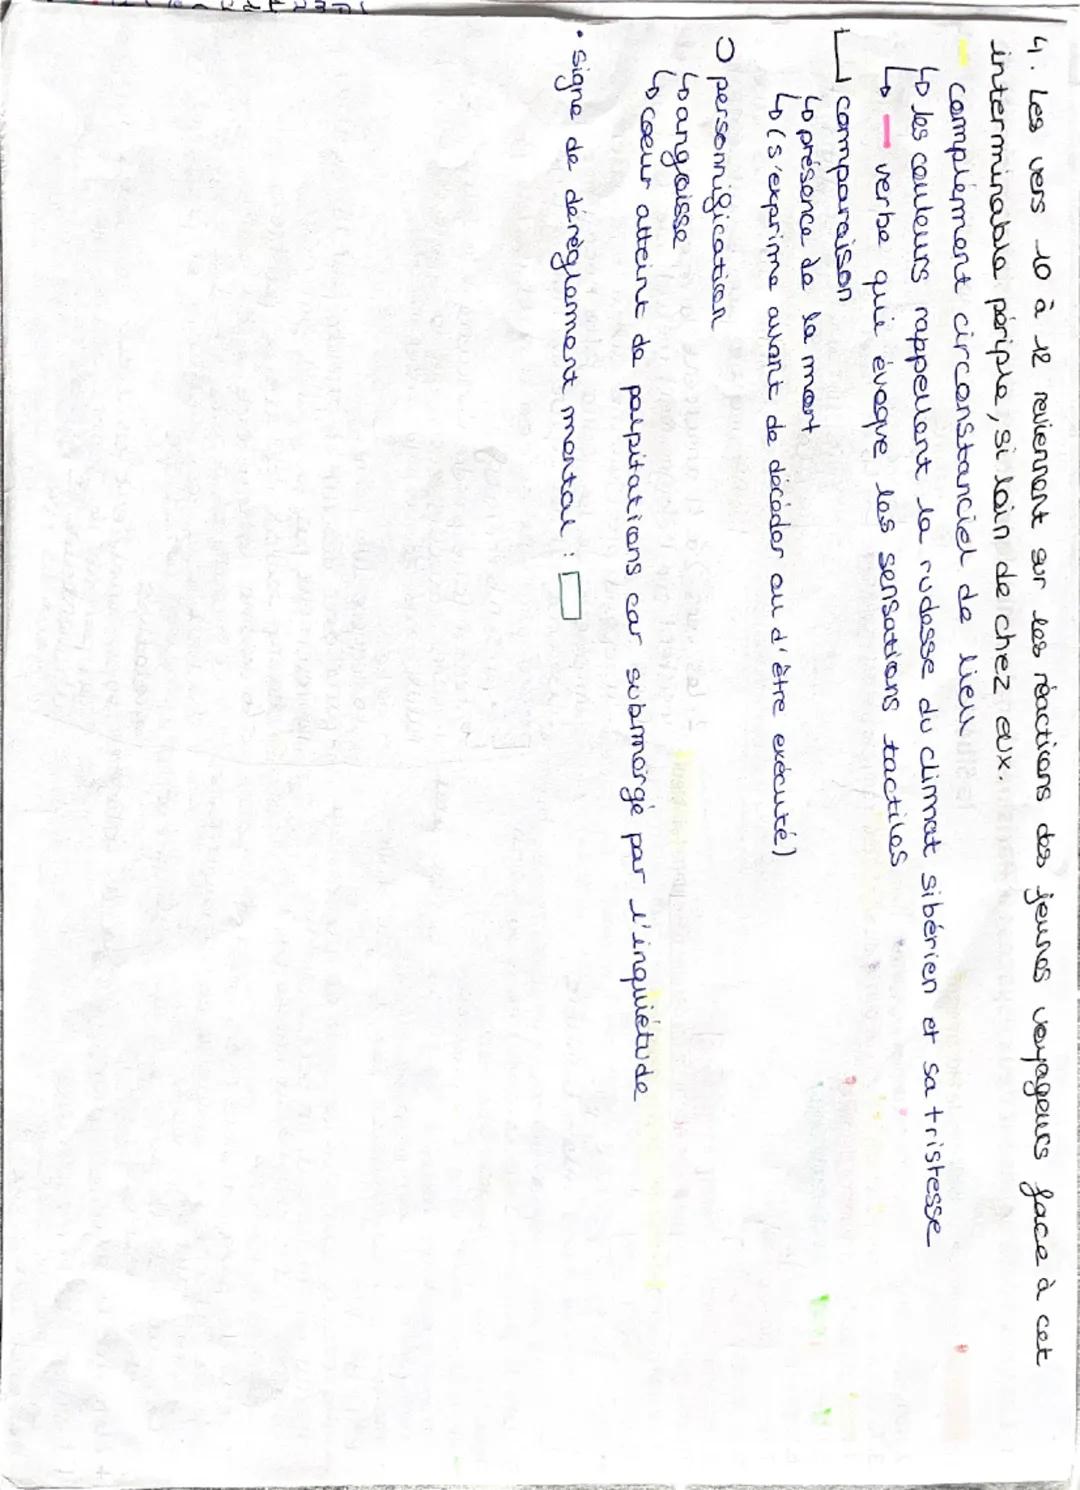 4. Les vers 10 à 12 reviennent sur les réactions des jeunes voyageurs face à cet
interminable périple, si loin de chez eux.
complément circonstanciel de lieu
↳ les couleurs rappellent la rudesse du climat sibérien et sa tristesse
↳ verbe qui évoque les sensations tactiles
comparaison
↳ présence de la mort
↳ (s'exprime avant de décéder ou d'être exécuté)
personnification
↳ angoisse
↳ coeur atteint de palpitations car submergé par l'inquiétude
• signe de dérèglement mental :